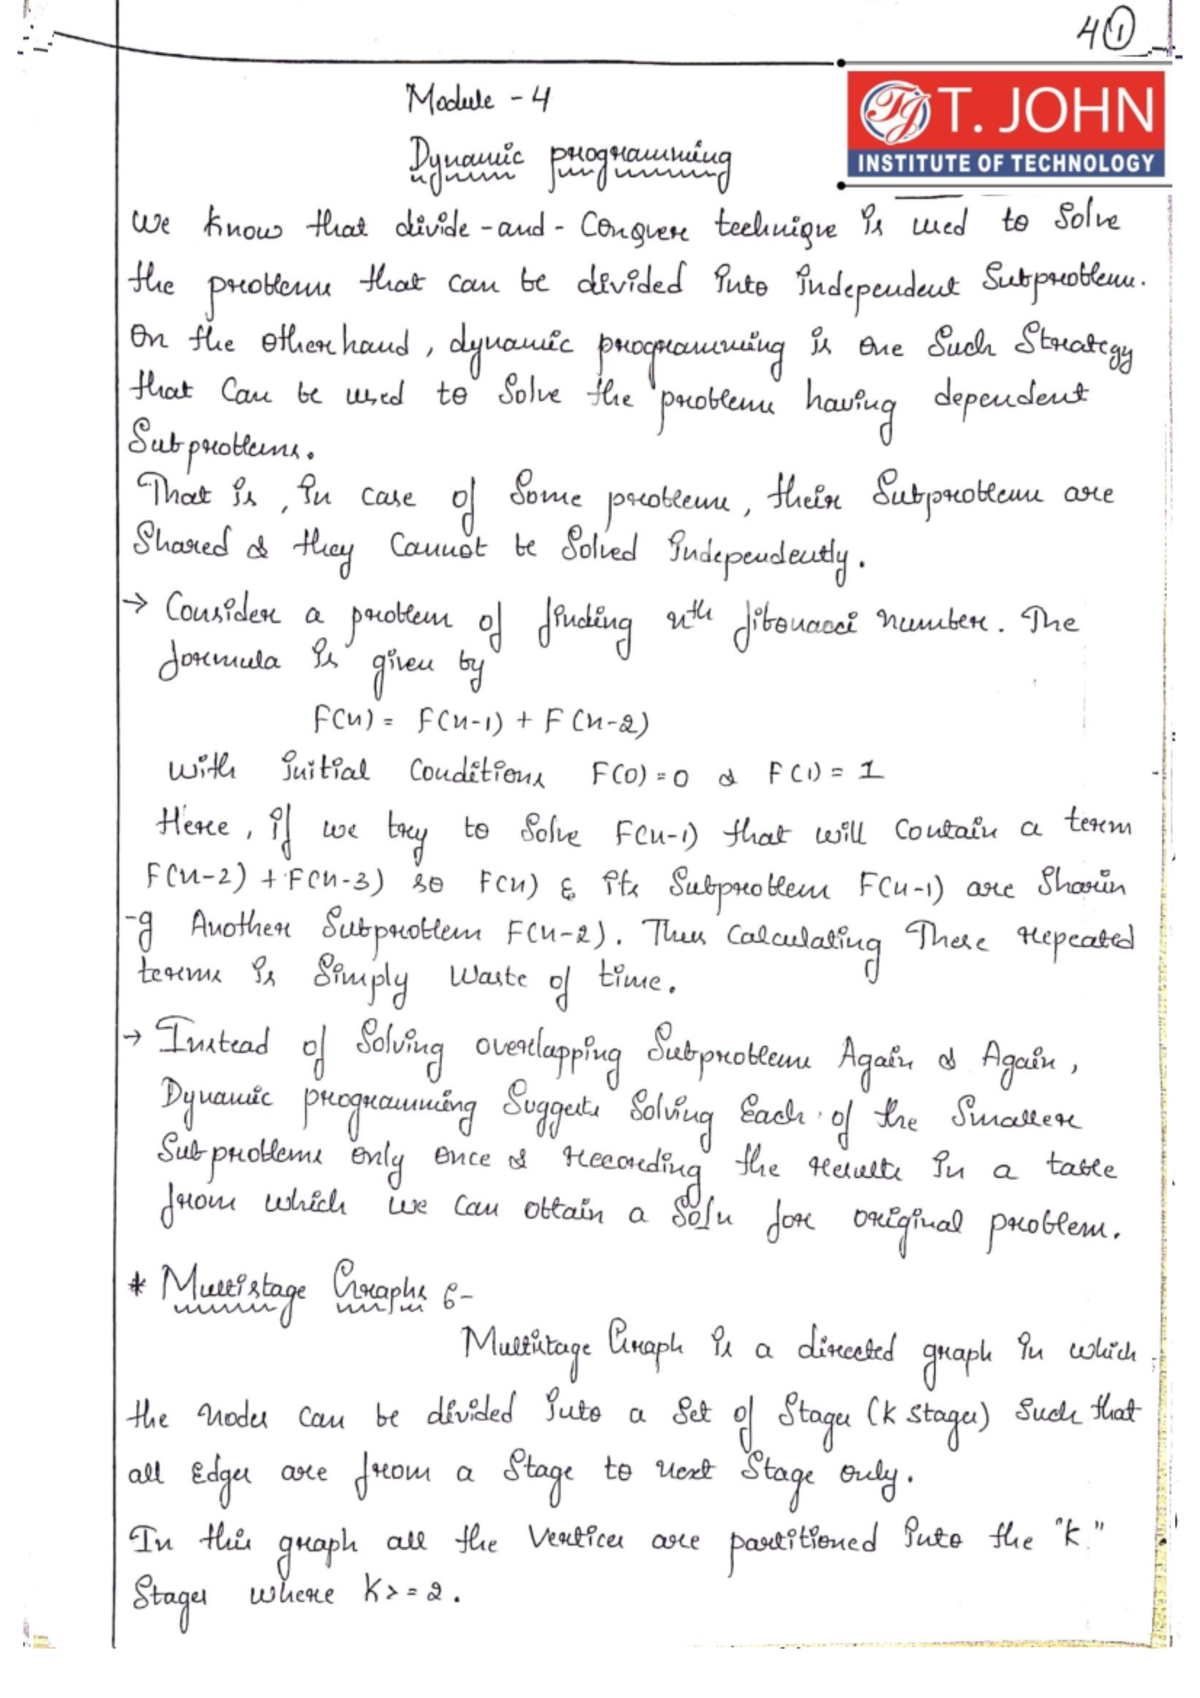 4①
T. JOHN
INSTITUTE OF TECHNOLOGY
Module - 4
Dynamic programming
We know that divide-and-Conquer technique is used to Solve
the problems that can be divided into independent Subproblems.
On the other hand, dynamic programming is one Such Strategy
that Can be used to Solve the problems having dependent
Subproblems.
That is, in case of Some problems, their Subproblems are
Shared & they Cannot be Solved independently.
→ Consider a problem of finding nth fibonacci number. The
formula is given by
F(n) = F(n-1) + F(n-2)
With initial Conditions F(0)=0 & F(1) = 1
Here, if we try to Solve F(n-1) that will Contain a term
F(n-2) + F(n-3) so F(n) & its Subproblem F(n-1) are Sharin
-g Another Subproblem F(n-2). Thus Calculating These repeated
terms is Simply Waste of time.
→ Instead of Solving overlapping Subproblems Again & Again,
Dynamic programming Suggests Solving Each of the Smaller
Subproblems only once & recording the results in a table
from which we can obtain a Soln for original problem.
* Multistage Graphs :-
Multistage Graph is a directed graph in which
the nodes can be divided into a Set of Stages (K stages) Such that
all Edges are from a Stage to next Stage only.
In this graph all the Vertices are partitioned into the "K"
Stages where K>=2.